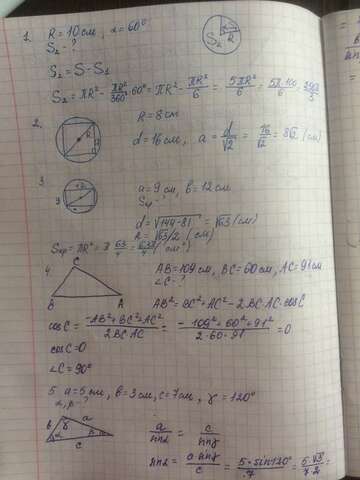 1. R = 10 см, α = 60°
S₂ - ?
S₂ = S - S₁
S₂ = πR² - πR²/360° · 60° = πR² - πR²/6 = 5πR²/6 = 5π·100/6 =
S₂
R
2.
R = 8 см
d = 16 см, a = d/√2 = 16/√2 = 8√2 (см)
R
3.
12
9
a = 9 см, b = 12 см
Sкр - ?
d = √144-81 = √63 (см)
R = √63/2 (см)
Sкр = πR² = π 63/4 = (см²)
4.
C
B
A
AB = 109 см, BC = 60 см, AC = 91 см
∠C - ?
AB² = BC² + AC² - 2·BC·AC·cosC
cosC = -AB² + BC² + AC²/2BC·AC = -109² + 60² + 91²/2·60·91 = 0
cosC = 0
∠C = 90°
5. a = 5 см, b = 3 см, c = 7 см, γ = 120°
α, β - ?
b
γ
a
α
c
a/sinα = c/sinγ
sinα = a sinγ/c = 5·sin120°/7 = 5·√3/7·2 =